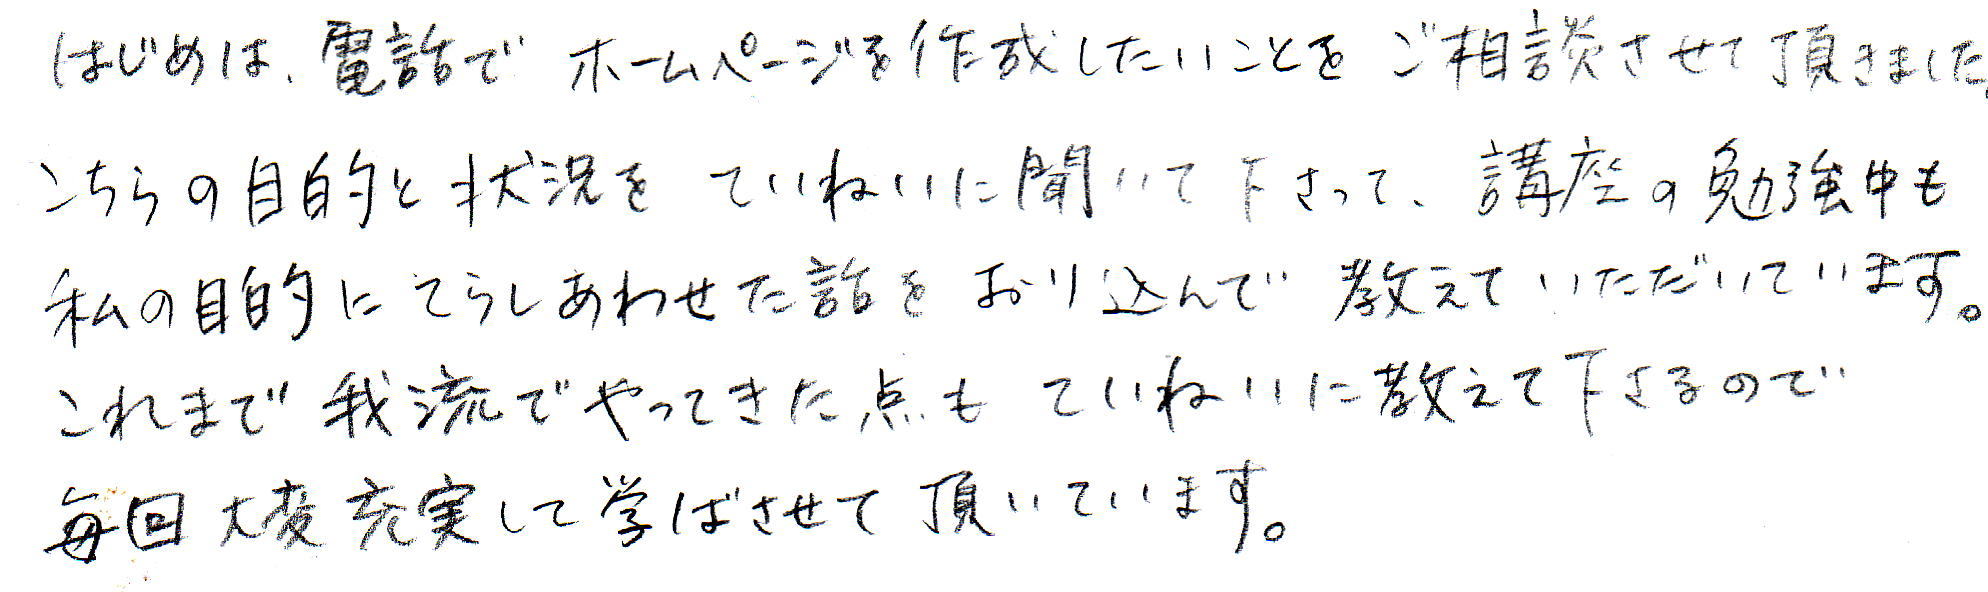 はじめは、電話で ホームページを作成したいことを ご相談させて頂きました。
こちらの目的と状況を ていねいに聞いて下さって、講座の勉強中も
私の目的にてらしあわせた話を おり込んで 教えていただいています。
これまで 我流でやってきた点も ていねいに教えて下さるので
毎回大変充実して学ばさせて頂いています。